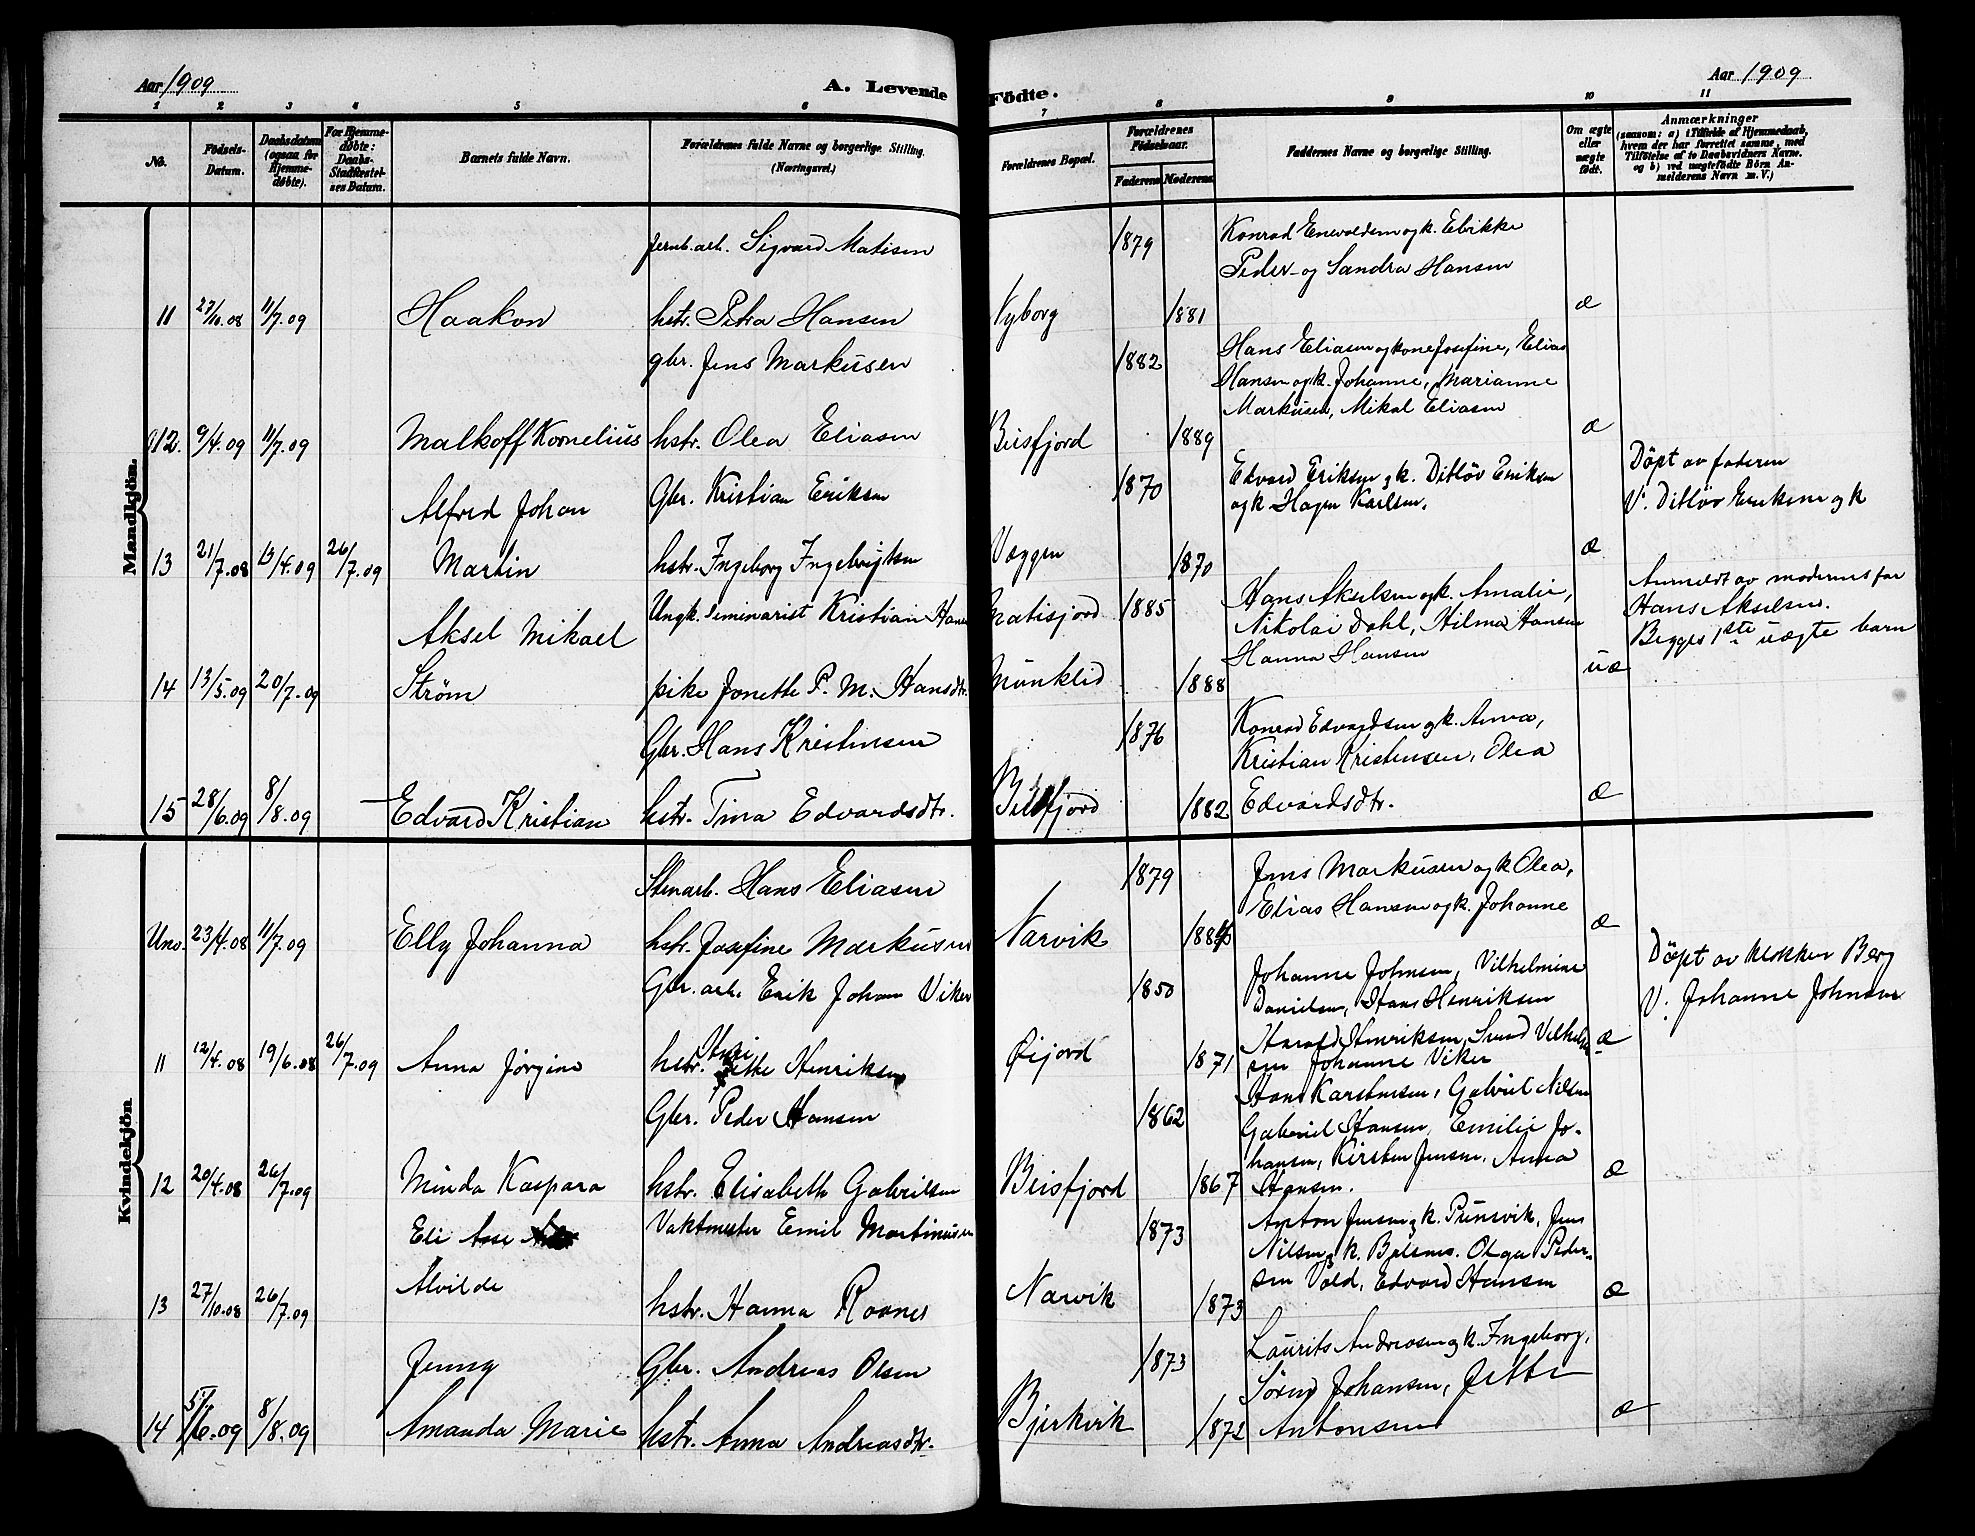 Aar 1909
A. Levende Födte.
Aar 1909
1 2 3 4 5 6 7 8 9 10 11
No. Födsels-Datum. Daabsdatum (ogsaa for Hjemme-döbte). For Hjemme-döbte: Daabs-Stadfæstel-ses Datum. Barnets fulde Navn. Forældrenes fulde Navne og borgerlige Stilling. (Næringsvei.) Forældrenes Bopæl. Forældrenes Födselsaar. Faderens Moderens Faddernes Navne og borgerlige Stilling. Om ægte eller uægte födt. Anmærkninger (saasom: a) i Tilfælde af Hjemmedaab, hvem der har forrettet samme, med Tilföielse af to Daabsvidners Navne. og b) ved uægtefödte Börn An-melderens Navn m. V.)
Mandkjön.
jernb.arb. Sigvard Matisen 1879 Konrad Enevoldsen og k. Elvikke
Peder og Sandra Hansen
11 27/10.08 11/7.09 Haakon hstr. Petra Hansen Nyborg 1881 æ
gbr. Jens Markusen 1882 Hans Eliasen og kone Josefine, Elias
Hansen og k. Johanne, Marianne
Markusen, Mikal Eliasen
12. 9/4.09 11/7.09 Malkoff Kornelius hstr. Olea Eliasen Beisfjord 1889 æ
Alfred Johan Gbr. Kristian Eriksen 1870 Edvard Eriksen og k. Ditløv Eriksen
og k. Hagen Karlsen. Döpt av faderen
V. Ditløv Eriksen og k
13 21/7.08 13/4.09 26/7.09 Martin hstr. Ingeborg Ingebrigtsen Væggen 1870 æ
Aksel Mikael Ungk. seminarist Kristian Hansen 1885 Hans Akselsen og k. Amalie,
Nikolai Dahl, Hilma Hansen
Hanna Hansen Anmeldt av moderens far
Hans Akselsen.
Begges 1ste uægte barn
14 13/5.09 20/7.09 Strøm pike Jonette P. M. Hansdtr. 1888 uæ
Gbr. Hans Kristensen 1876 Konrad Edvardsen og k. Anna,
Kristian Kristensen, Olea
15 28/6.09 8/8.09 Edvard Kristian hstr. Tina Edvardsdtr. Beisfjord 1882 Edvardsdtr. æ
Kvindekjön
Stenarb. Hans Eliasen 1879 Jens Markusen og k Olea,
Elias Hansen og k. Johanne
23/4.08 11/7.09 Elly Johanna hstr. Josefine Markusen Narvik æ
Gbr. arb. Erik Johan Viker 1850 Johanne Johnsen, Vilhelmine
Danielsen, Hans Henriksen Döpt av klokker Berg
V. Johanne Johnsen
11 12/4.08 19/6.08 26/7.09 Anna Jørgine hstr. Henriksen Øijord 1871 Harald Henriksen,
Johanne Viker æ
Gbr. Peder Hansen 1862 Hans Karstensen, Gabriel Nilsen
Gabriel Hansen, Emilie Jo-
hansen, Kirsten Jensen, Anna
12 20/4.08 26/7.09 Minda Kaspara hstr. Elisabeth Gabrielsen Beisfjord 1867 Hansen. æ
Eli Aase Vaktmester Emil Martinusen 1873 Anton Jensen og k. Prinsvik, Jens
Nilsen og k. Olga Peder-
sen Vold, Edvard Hansen
13 27/10.08 26/7.09 Alvilde hstr. Hanna Roanes Narvik 1873 æ
Jenny Gbr. Andreas Olsen 1873 Laurits Andreasen og k. Ingeborg,
Søren Johansen, Jette
14 5/6.09 8/8.09 Amanda Marie hstr. Anna Andreasdtr. Bjerkvik 1872 Antonsen æ